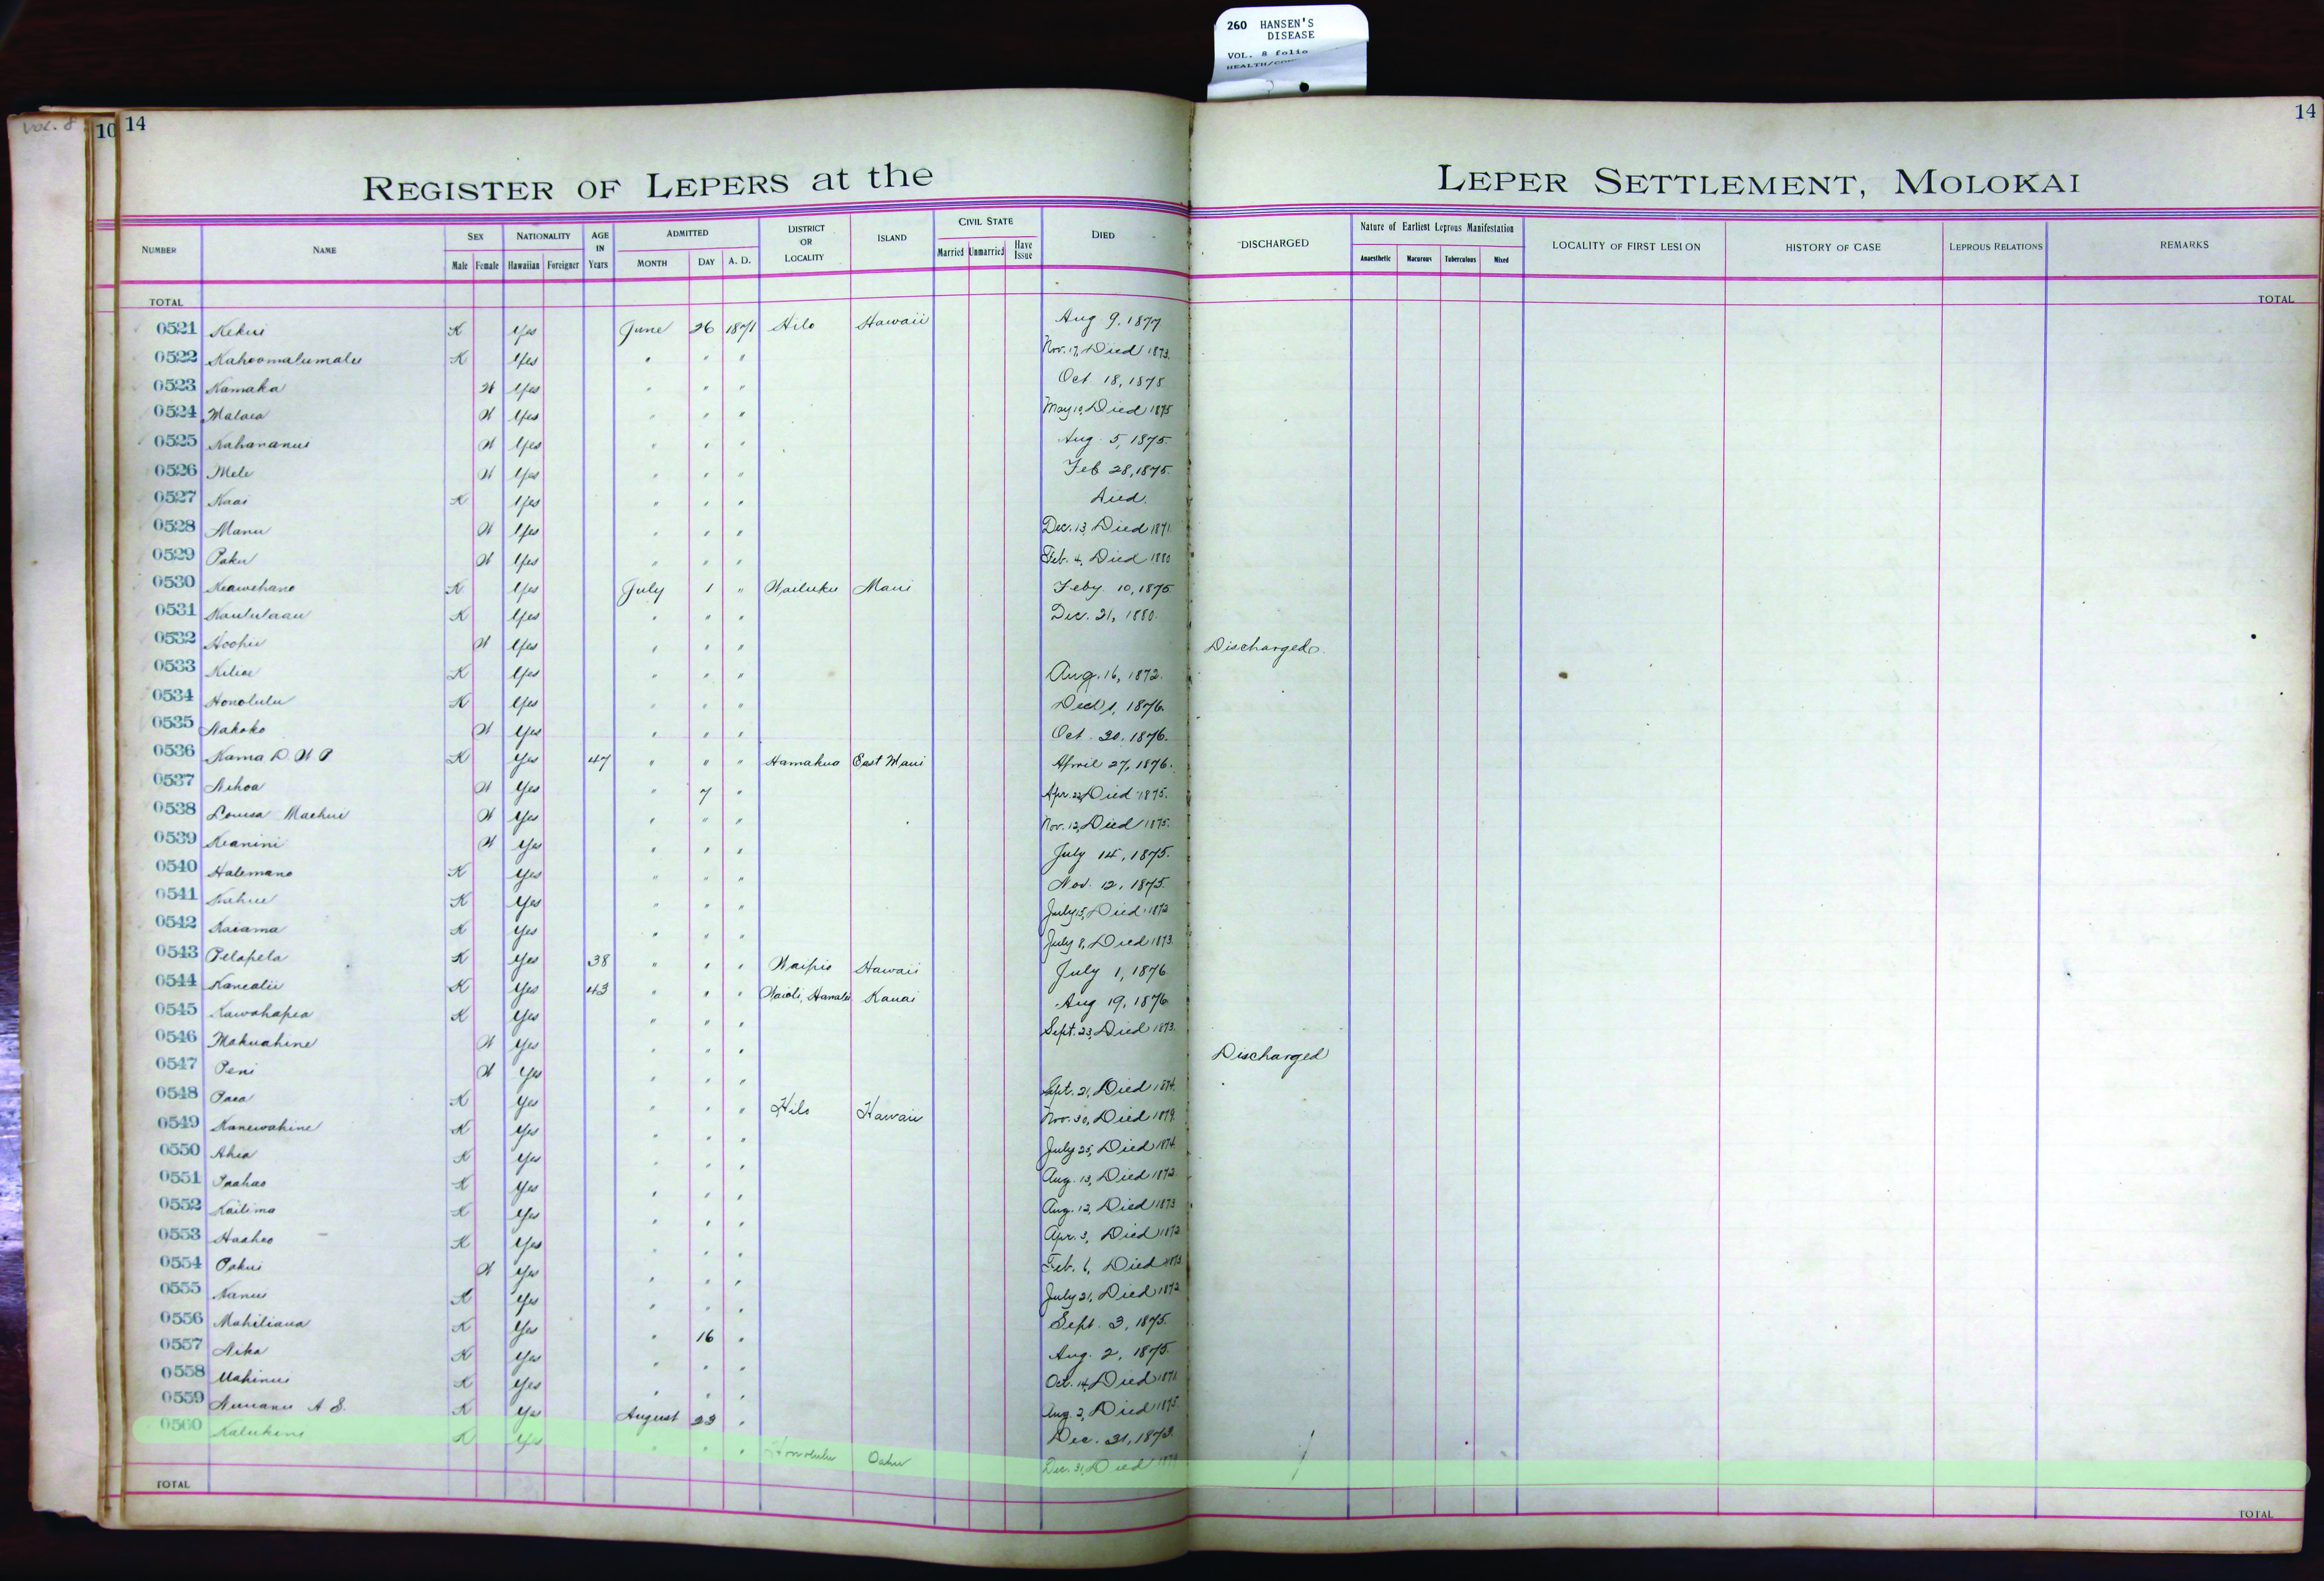 260 HANSEN'S
DISEASE
VOL. 8 folio
VOL. 8
10 14
14
REGISTER OF LEPERS at the LEPER SETTLEMENT, MOLOKAI
NUMBER NAME SEX NATIONALITY AGE IN Years ADMITTED DISTRICT OR LOCALITY ISLAND CIVIL STATE DIED DISCHARGED Nature of Earliest Leprous Manifestation LOCALITY OF FIRST LESION HISTORY OF CASE LEPROUS RELATIONS REMARKS
Male Female Hawaiian Foreigner MONTH DAY A. D. Married Unmarried Have Issue Anaesthetic Macurous Tuberculous Mixed
TOTAL TOTAL
0521 Kekui K Yes June 26 1871 Hilo Hawaii Aug 9, 1877
0522 Kahoomalumalu K Yes " " " Nov. 17, Died 1873.
0523 Kamaka W Yes " " " Oct 18, 1875
0524 Malaea W Yes " " " May 10, Died 1875
0525 Kahananui W Yes " " " Aug. 5, 1875.
0526 Mele W Yes " " " Feb 28, 1875.
0527 Kaai K Yes " " " Died.
0528 Manu W Yes " " " Dec. 13, Died 1871
0529 Paku W Yes " " " Feb. 4, Died 1880
0530 Keawehano K Yes July 1 " Wailuku Maui Feby 10, 1875
0531 Kaululaau K Yes " " " Dec. 21, 1880.
0532 Hoohii W Yes " " " Discharged.
0533 Kiliae K Yes " " " Aug. 16, 1872.
0534 Honolulu K Yes " " " 1, 1876.
0535 Nakoko W Yes " " " Oct. 20, 1876.
0536 Kama D. W P K Yes 47 " " " Hamakua East Maui April 27, 1876.
0537 Nihoa W Yes " 7 " Apr. 22, Died 1875.
0538 Louisa Maehui W Yes " " " Nov. 12, Died 1875.
0539 Keanini W Yes " " " July 14, 1875.
0540 Halemano K Yes " " " Nov. 12, 1875.
0541 Kahue K Yes " " " July 15, Died 1872
0542 Kaiama K Yes " " " July 8, Died 1873.
0543 Pelapela K Yes 38 " " " Waipio Hawaii July 1, 1876
0544 Kanealii K Yes 43 " " " Waioli, Hanalei Kauai Aug 19, 1876
0545 Kawahapea K Yes " " " Sept. 23, Died 1873.
0546 Makuahine W Yes " " " Discharged
0547 Peni W Yes " " " Sept. 21, Died 1874.
0548 Paea K Yes " " " Hilo Hawaii Nov. 30, Died 1879.
0549 Kanewahine K Yes " " " July 25, Died 1874.
0550 Ahia K Yes " " " Aug. 13, Died 1872.
0551 Paahao K Yes " " " Aug. 12, Died 1873
0552 Kailima K Yes " " " Apr. 3, Died 1872
0553 Haaheo K Yes " " " Feb. 6, Died 1873
0554 Pakui W Yes " " " July 21, Died 1872
0555 Nanui K Yes " " " Sept. 3, 1875.
0556 Mahiliaua K Yes " 16 " Aug. 2, 1875.
0557 Nika K Yes " " " Oct. 14, Died 1871.
0558 Mahinui K Yes " " " Aug. 2, Died 1875.
0559 Nuuanu A S. K Yes August 23 " Dec. 31, 1873.
0560 Kalukini K Yes " " " Honolulu Oahu Dec. 31, Died
TOTAL TOTAL